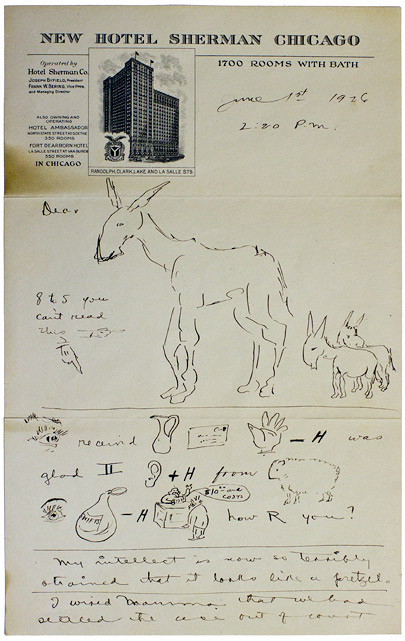 NEW HOTEL SHERMAN CHICAGO
Operated by
Hotel Sherman Co.
JOSEPH BYFIELD, President
FRANK W. BERING, Vice Pres.
and Managing Director
1700 ROOMS WITH BATH
June 1st 1926
2:20 P.M.
ALSO OWNING AND
OPERATING
HOTEL AMBASSADOR
NORTH STATE STREET AT GOETHE
350 ROOMS
FORT DEARBORN HOTEL
LA SALLE STREET AT VAN BUREN
550 ROOMS
IN CHICAGO
RANDOLPH, CLARK, LAKE AND LA SALLE STS.
Dear
8 to 5 you
can't read
this
received - H was
glad II + H from
$10.00 and
costs
- H how R you?
My intellect is now so terribly
strained that it looks like a pretzel.
I wired Mamma that we had
settled the case out of court